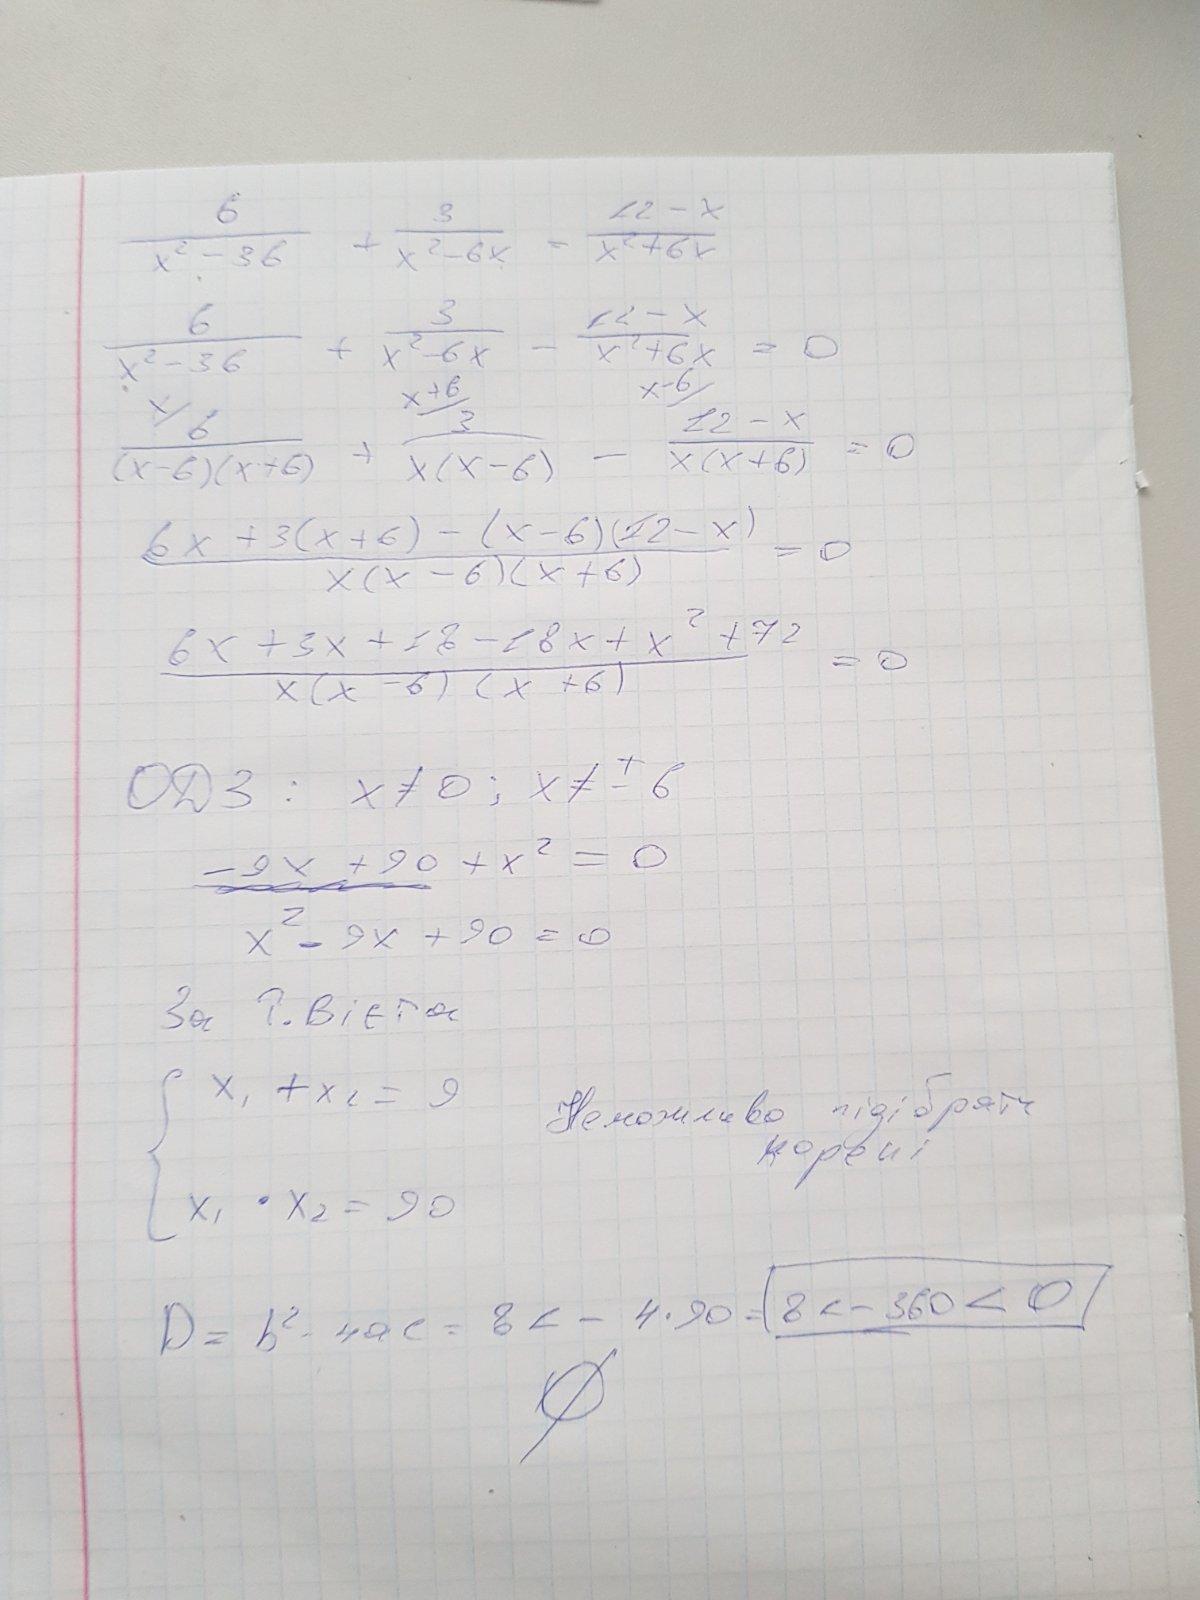 6/(x² - 36) + 3/(x² - 6x) = (12 - x)/(x² + 6x)
6/(x² - 36) + 3/(x² - 6x) - (12 - x)/(x² + 6x) = 0
x/ x+6/ x-6/
6/((x-6)(x+6)) + 3/(x(x-6)) - (12 - x)/(x(x+6)) = 0
(6x + 3(x+6) - (x-6)(12-x))/(x(x-6)(x+6)) = 0
(6x + 3x + 18 - 18x + x² + 72)/(x(x-6)(x+6)) = 0
ОДЗ: x ≠ 0; x ≠ ± 6
-9x + 90 + x² = 0
x² - 9x + 90 = 0
За Т. Вієта
x₁ + x₂ = 9
Неможливо підібрати
корені
x₁ • x₂ = 90
D = b² - 4ac = 81 - 4·90 = 81 - 360 < 0
∅